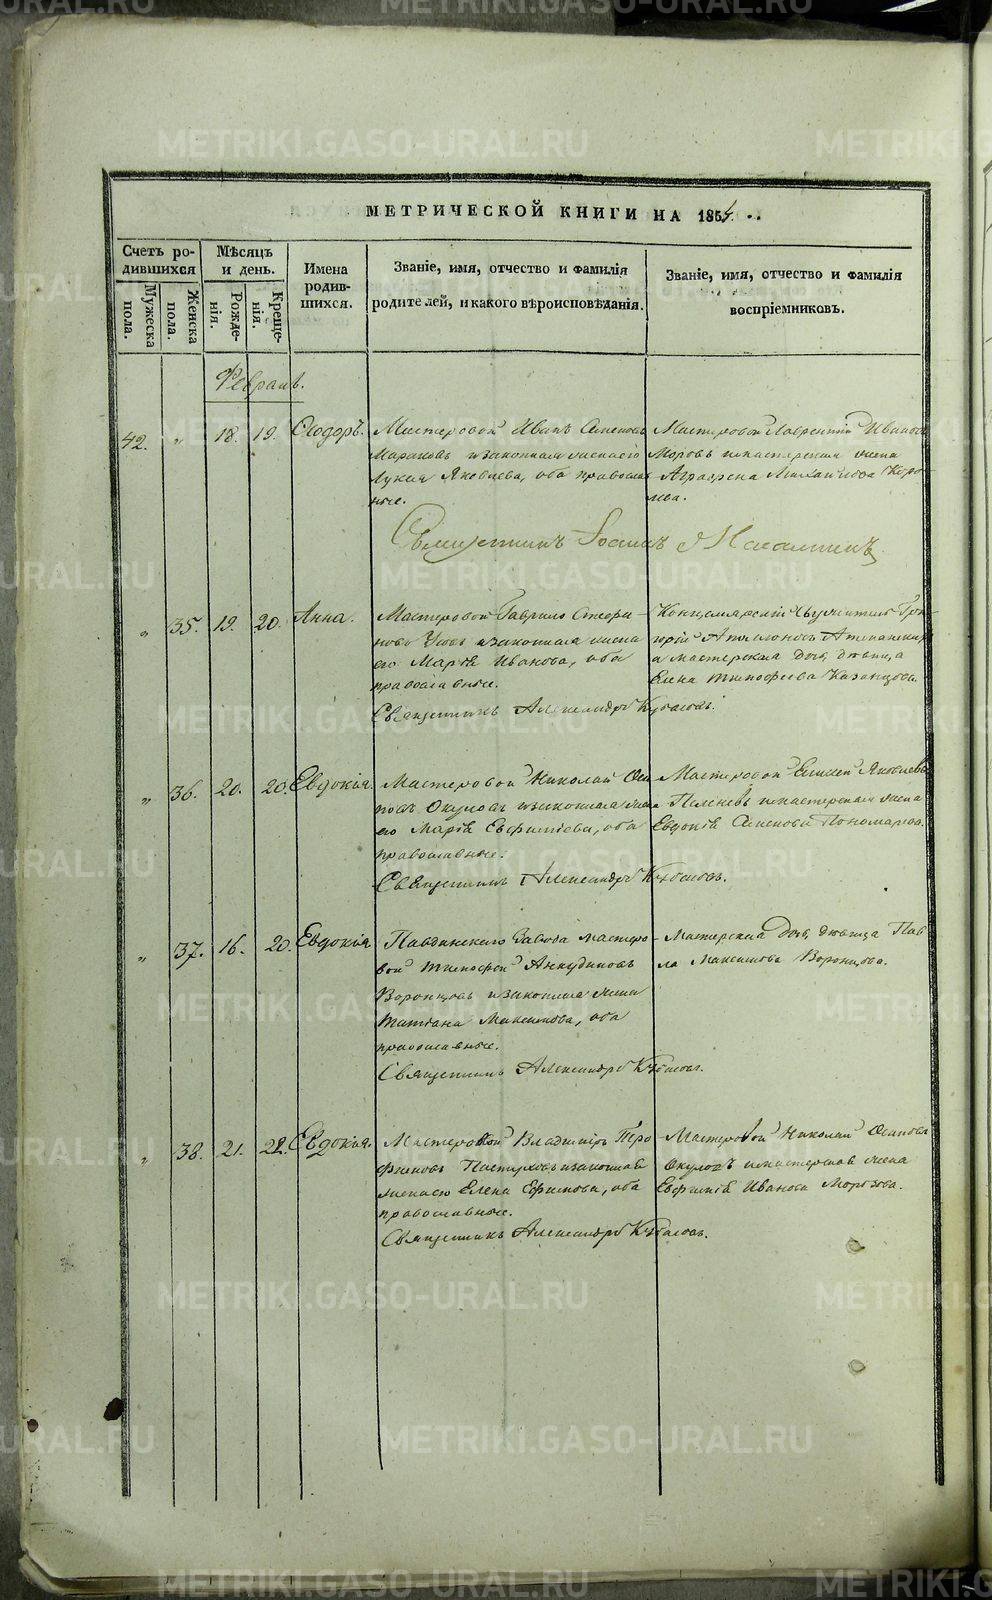 МЕТРИЧЕСКОЙ КНИГИ НА 1854.
Счетъ ро-
дившихся
Мужеска
пола.
Женска
пола.
Мѣсяцъ
и день.
Рожде-
нія.
Креще-
нія.
Имена
родив-
шихся.
Званіе, имя, отчество и фамилія
родителей, и какого вѣроисповѣданія.
Званіе, имя, отчество и фамилія
воспріемниковъ.
Февраль.
42. „ 18. 19. Ѳеодоръ.
Мастеровой Иванъ Семеновъ
и законная жена его
Лукія Яковлева, оба православ
ные.
Мастеровой Лаврентій Ивановъ
и мастерская жена
Аграфена
Священникъ Іоаннъ
„ 35. 19. 20. Анна.
Мастеровой Гаврило
и законная жена
его Марія Иванова, оба
православные.
Священникъ Александръ
Канцелярскій
а мастерская дочь, дѣвица
Елена Тимофеева Казанцова.
„ 36. 20. 20. Евдокія.
Мастеровой Николай Оси
повъ Окуловъ и законная жена
его Марія Евфиміева, оба
православные.
Священникъ Александръ
Мастеровой Елисей Яковлевъ
и мастерская жена
Евдокія Семенова Пономарева.
„ 37. 16. 20. Евдокія
Павдинскаго Завода мастеро-
вой Тимофей Анкудиновъ
Воронцовъ и законная жена
Татіана Максимова, оба
православные.
Священникъ Александръ
Мастерская дочь, дѣвица Пав
ла Максимова Воронцова.
„ 38. 21. 22. Евдокія.
Мастеровой Владиміръ Тро
фимовъ Пастуховъ и законная
жена его Елена Ефимова, оба
православные.
Священникъ Александръ
Мастеровой Николай Осиповъ
Окуловъ и мастерская жена
Евфимія Иванова Морозова.
METRIKI.GASO-URAL.RU